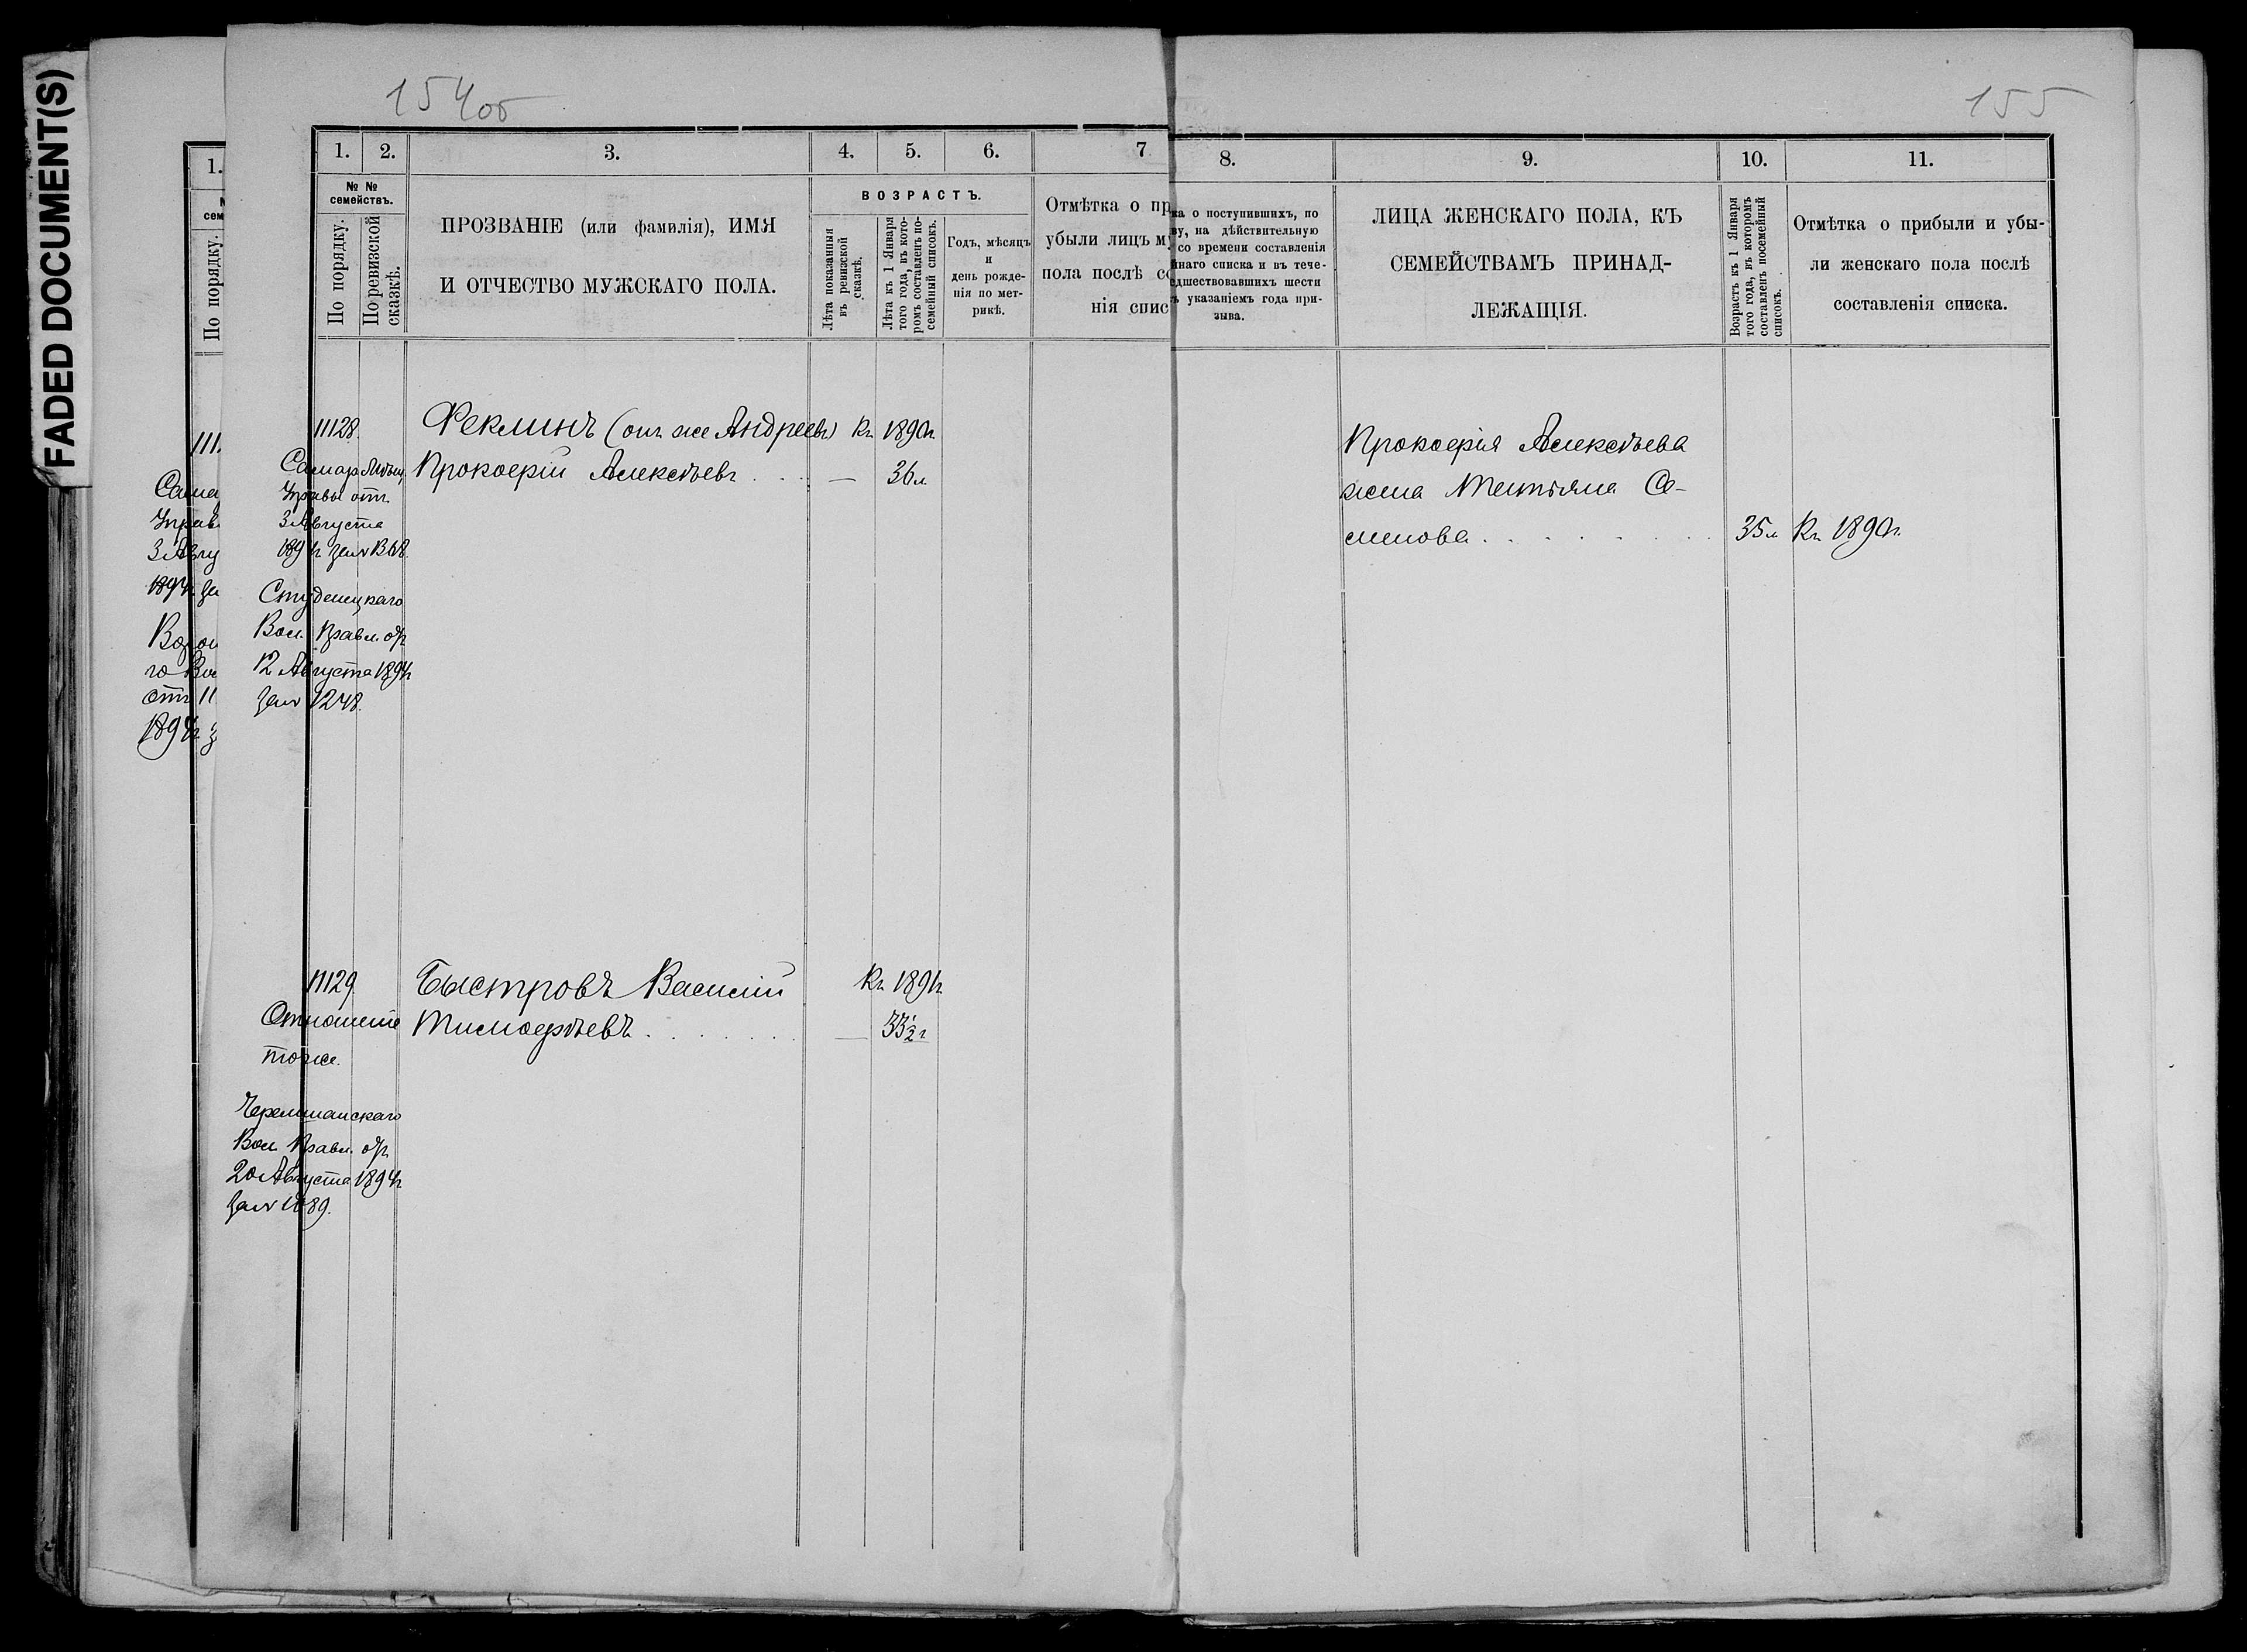 FADED DOCUMENT(S)
154об
155
1.
2.
3.
4.
5.
6.
7
8.
9.
10.
11.
№ №
семействъ.
По порядку.
По ревизской
сказкѣ.
ПРОЗВАНІЕ (или фамилія), ИМЯ
И ОТЧЕСТВО МУЖСКАГО ПОЛА.
ВОЗРАСТЪ.
Лѣта показанныя
въ ревизской
сказкѣ.
Лѣта къ 1 Января
того года, въ кото-
ромъ составленъ по-
семейный списокъ.
Годъ, мѣсяцъ
и
день рожде-
нія по мет-
рикѣ.
Отмѣтка о пр
убыли лицъ му
пола послѣ со
нія спис
ка о поступившихъ, по
ву, на дѣйствительную
со времени составленія
йнаго списка и въ тече-
едшествовавшихъ шести
ъ указаніемъ года при-
зыва.
ЛИЦА ЖЕНСКАГО ПОЛА, КЪ
СЕМЕЙСТВАМЪ ПРИНАД-
ЛЕЖАЩІЯ.
Возрастъ къ 1 Января
того года, въ которомъ
составленъ посемейный
списокъ.
Отмѣтка о прибыли и убы-
ли женскаго пола послѣ
составленія списка.
1.
сем
По порядку.
111
Сама
Управ
3 Авгу
1894г за
го Вол
отъ 11
1894г з
11128.
Самар. Мѣщ.
Управы отъ
3 Августа
1894г за №
Студенецкаго
Вол. Правл. отъ
12 Августа 1894г
за № 1248.
Феклинъ (онъ же Андреевъ)
Прокофій Алексѣевъ
Къ 1890г.
— 36л
Прокофія Алексѣева
жена Татьяна Се-
менова
35л
Къ 1890г.
11129.
Отношеніе
тоже.
Черемшанскаго
Вол. Правл. отъ
20 Августа 1894г
за № 1089.
Быстровъ Василій
Тимофѣевъ
Къ 1891г
— 33½г